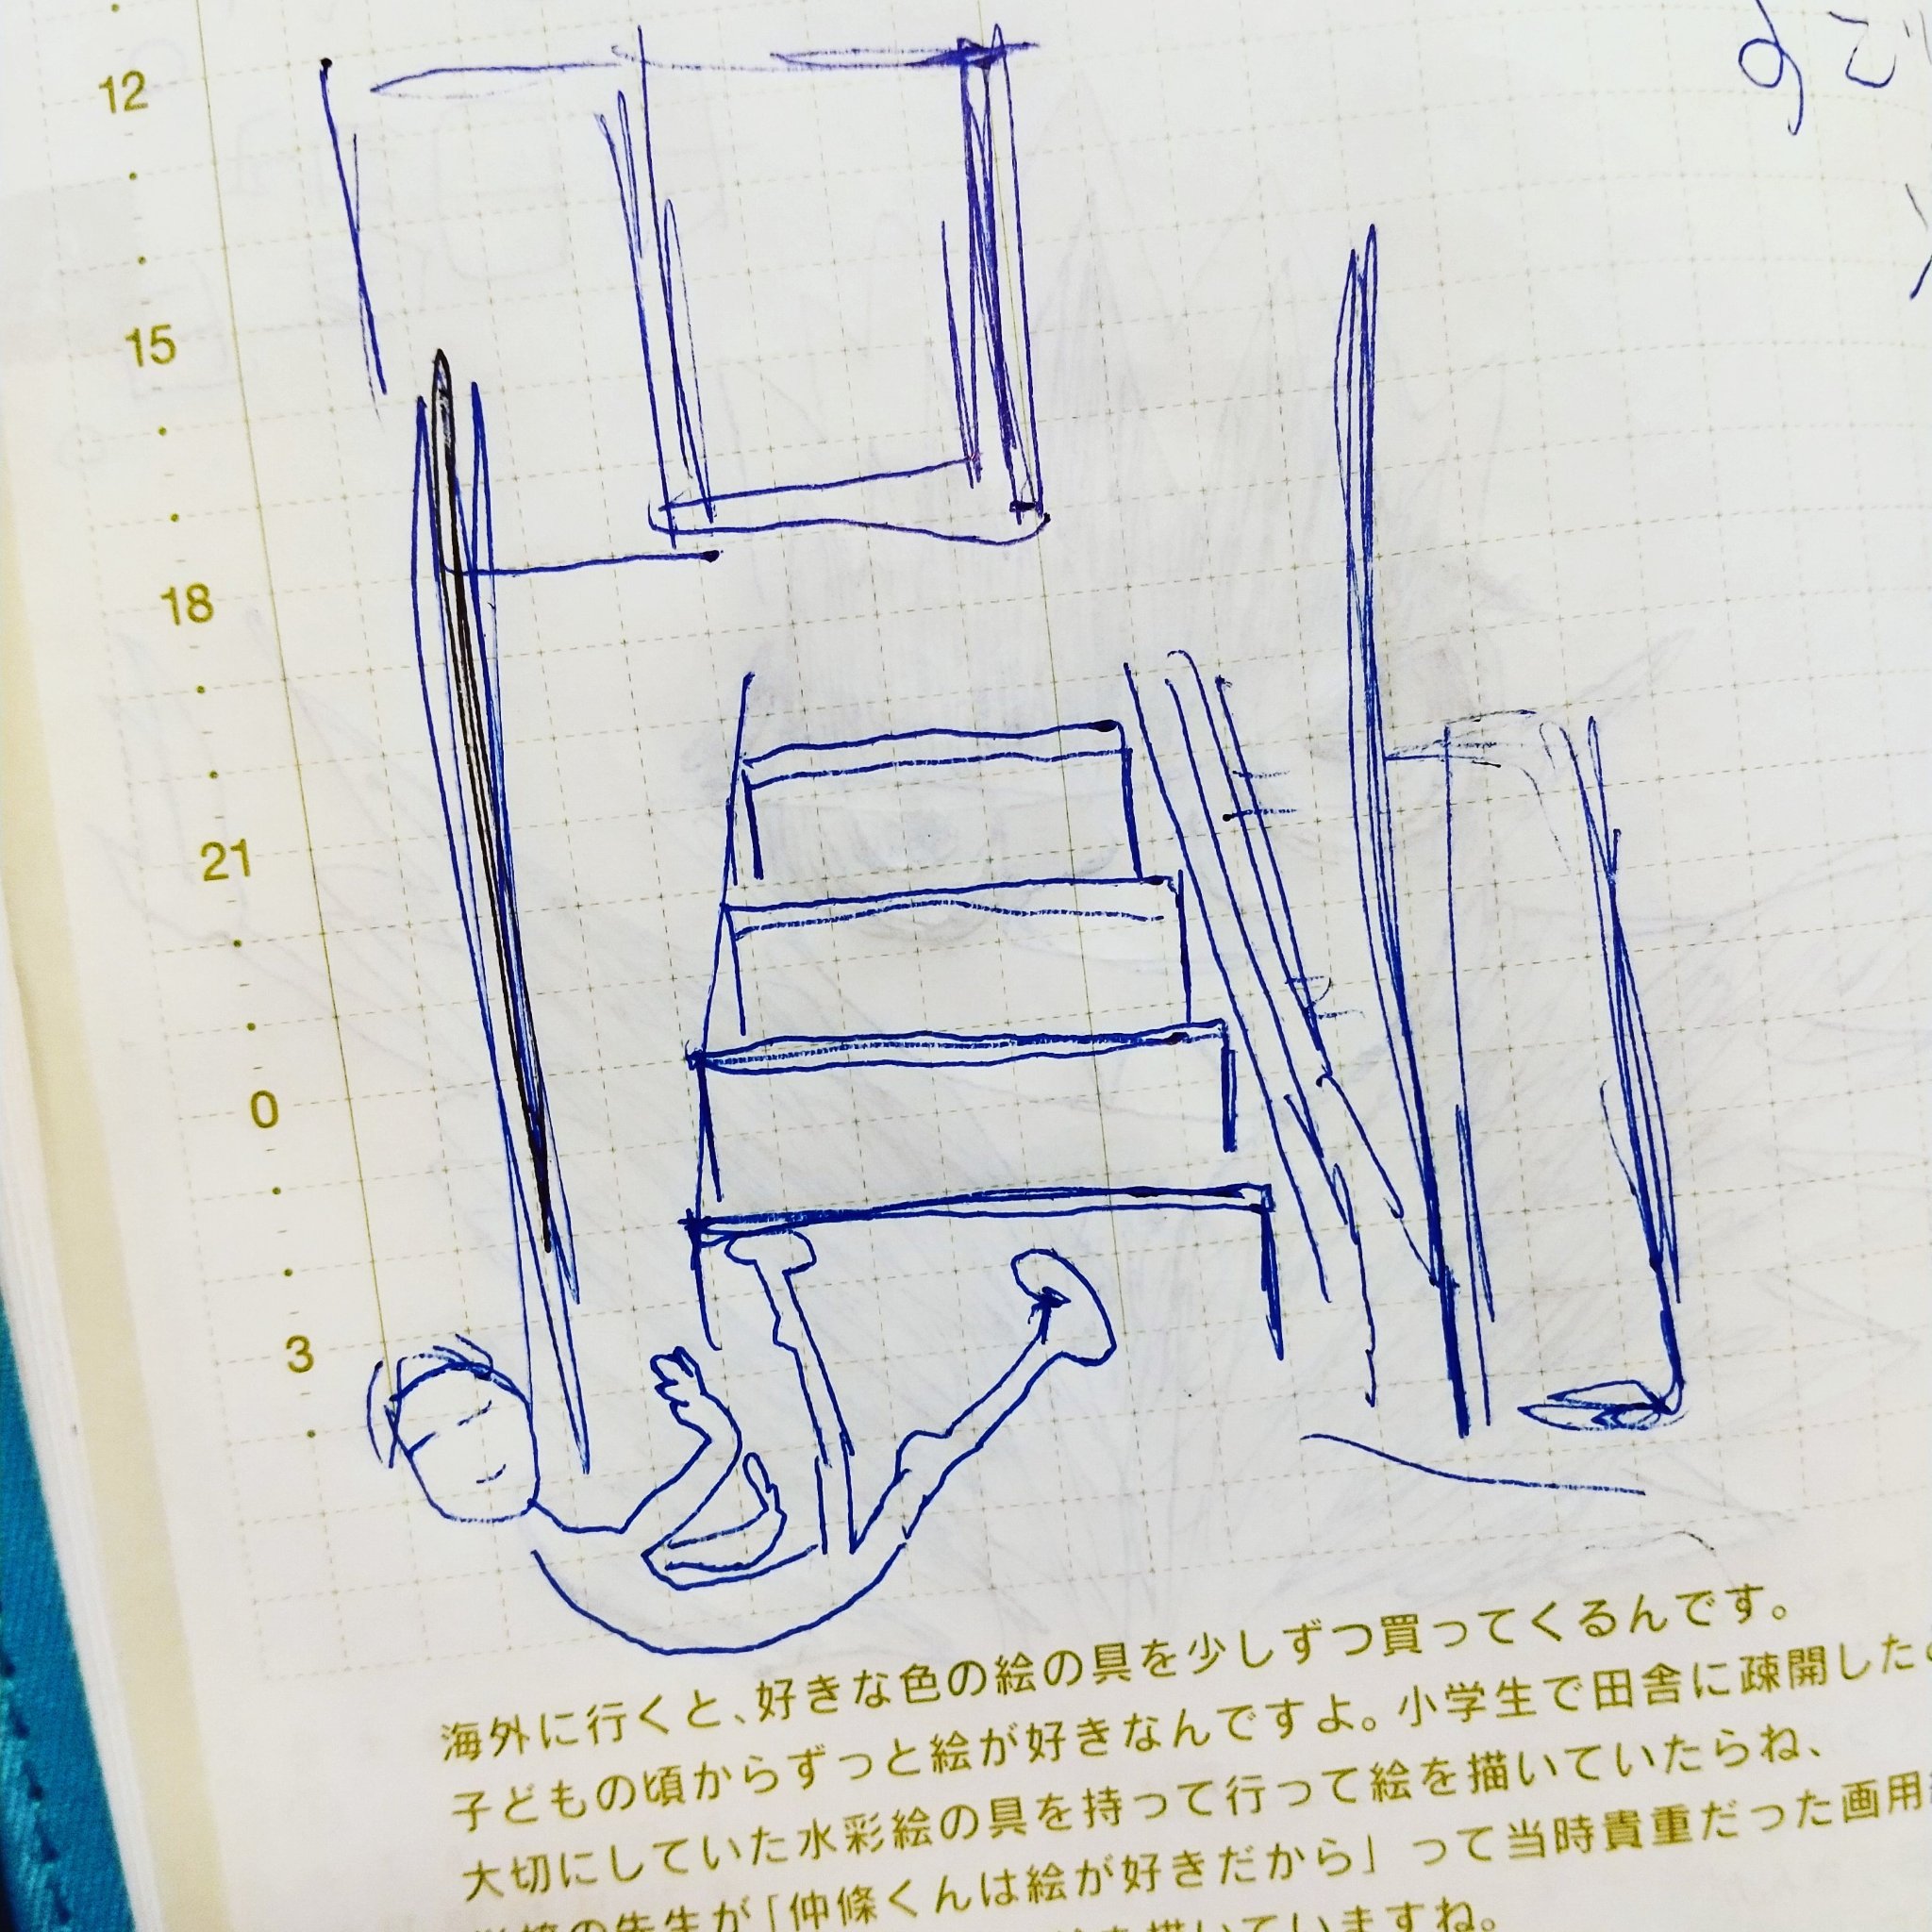 すごい
12
15
18
21
0
3
海外に行くと、好きな色の絵の具を少しずつ買ってくるんです。
子どもの頃からずっと絵が好きなんですよ。小学生で田舎に疎開した
大切にしていた水彩絵の具を持って行って絵を描いていたらね、
の先生が「仲條くんは絵が好きだから」って当時貴重だった画用
を描いていますね。